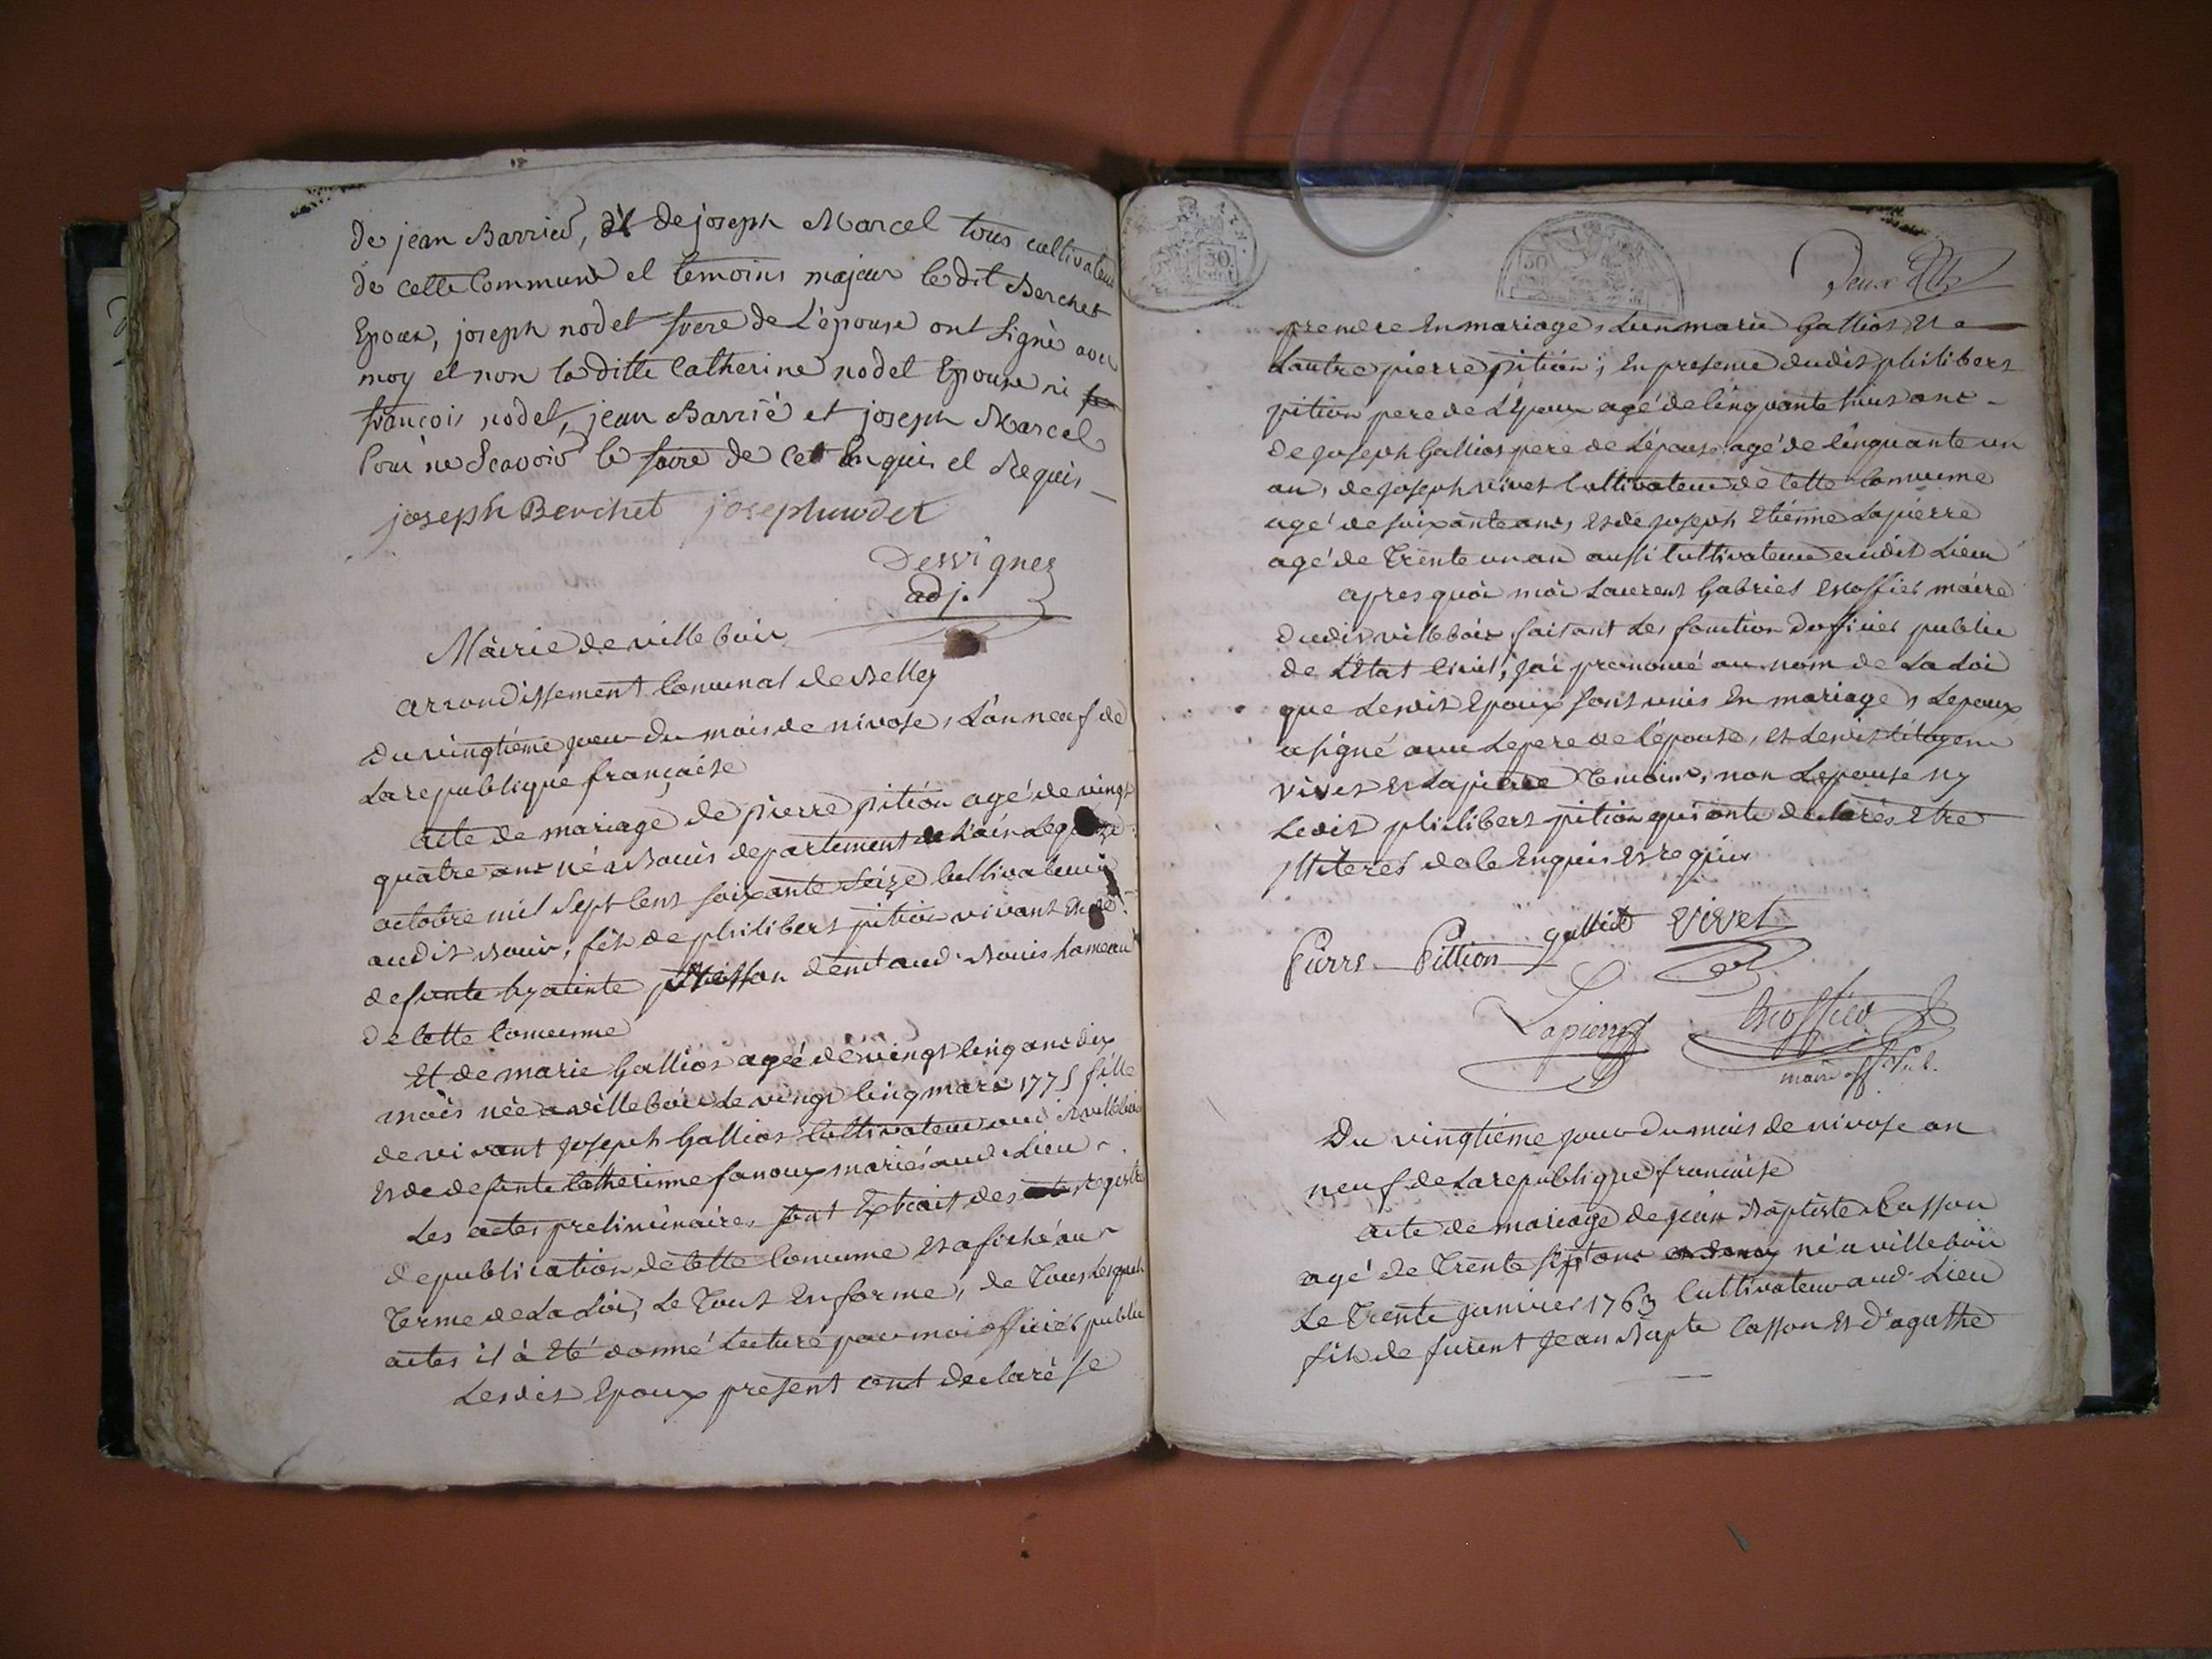 de jean Barrier, et de joseph Marcel tous cultivateur
de cette Commune et temoins majeur le dit Berchet
Epoux, joseph nodet frere de L'épouse ont Signé avec
moy et non la ditte Catherine nodet Epouse ni
françois nodet, jean Barrié et joseph Marcel
Pour ne Scavoir le faire de Ce Enquis et Requis
joseph Berchet joseph nodet
Desvignes
adj.
Mairie de villebois
arrondissement Comunal de Belley
Du vingtiéme jour du mois de nivose, L'an neuf de
La republique françaéise
acte de mariage de pierre pition agé de vingt
quatre ans né a Bouis departement de L'ain Le
octobre mil Sept Cent soixante Seize Cultivateur
audit Bouis, fils de philibert pition vivant et de
defunte hyacinte demt aud. Bouis hameau
de Cette Comunne
Et de marie Galliot ageé de vingt Cinq ans dix
mois née a villebois Le vingt Cinq mars 1775 fille
de vivant Joseph Galliot Cultivateur audit villebois
Et de defunte Catherinne fanoux mariés aud. Lieu
Les actes preliminaires sont Extrait des registre
de publication de Cette Comunne Et afiché au
Terme de La Loi, Le Tout En forme, de Tous Lesquels
actes il à Eté donné Lecture par moi officier public
Lesdit Epoux present ont declaré se
Deux
prendre En mariage, L'un marie Galliot Et
L'autre pierre pition, En presence dudit philibert
pition pere de L'Epoux agé de Cinquante huit ans
de Joseph Galliot pere de L'épouse agé de Cinquante un
an, de Joseph vivet Cultivateur de Cette Comunne
agé de soixante ans, Et de Joseph Etiénne Lapierre
agé de Trente un an aussi Cultivateur audit Lieu
apres quoi moi Laurent Gabriel Escoffier maire
dudit villebois faisant Les fonction D'officier public
de L'Etat Civil, j'ai prononcé au nom de La Loi
que Lesdit Epoux sont unis En mariage, L'epoux
a signé avec Le pere de L'épouse, et Lesdit Citoyens
vivet et Lapierre Temoins, non L'epouse ny
Ledit philibert pition qui onte declarés Etre
illiterés de Ce Enquis Et requis
Pierre Pittion galliot vivet
Lapierre Escoffier
maire off. Pub.
Du vingtiéme jour du mois de nivose an
neuf de La republique francaise
acte de mariage de jean Baptiste Casson
agé de Trente sept ans né a villebois
Le Trente Janvier 1763 Cultivateur aud. Lieu
fils de furent Jean Bapte Casson Et d'agathe